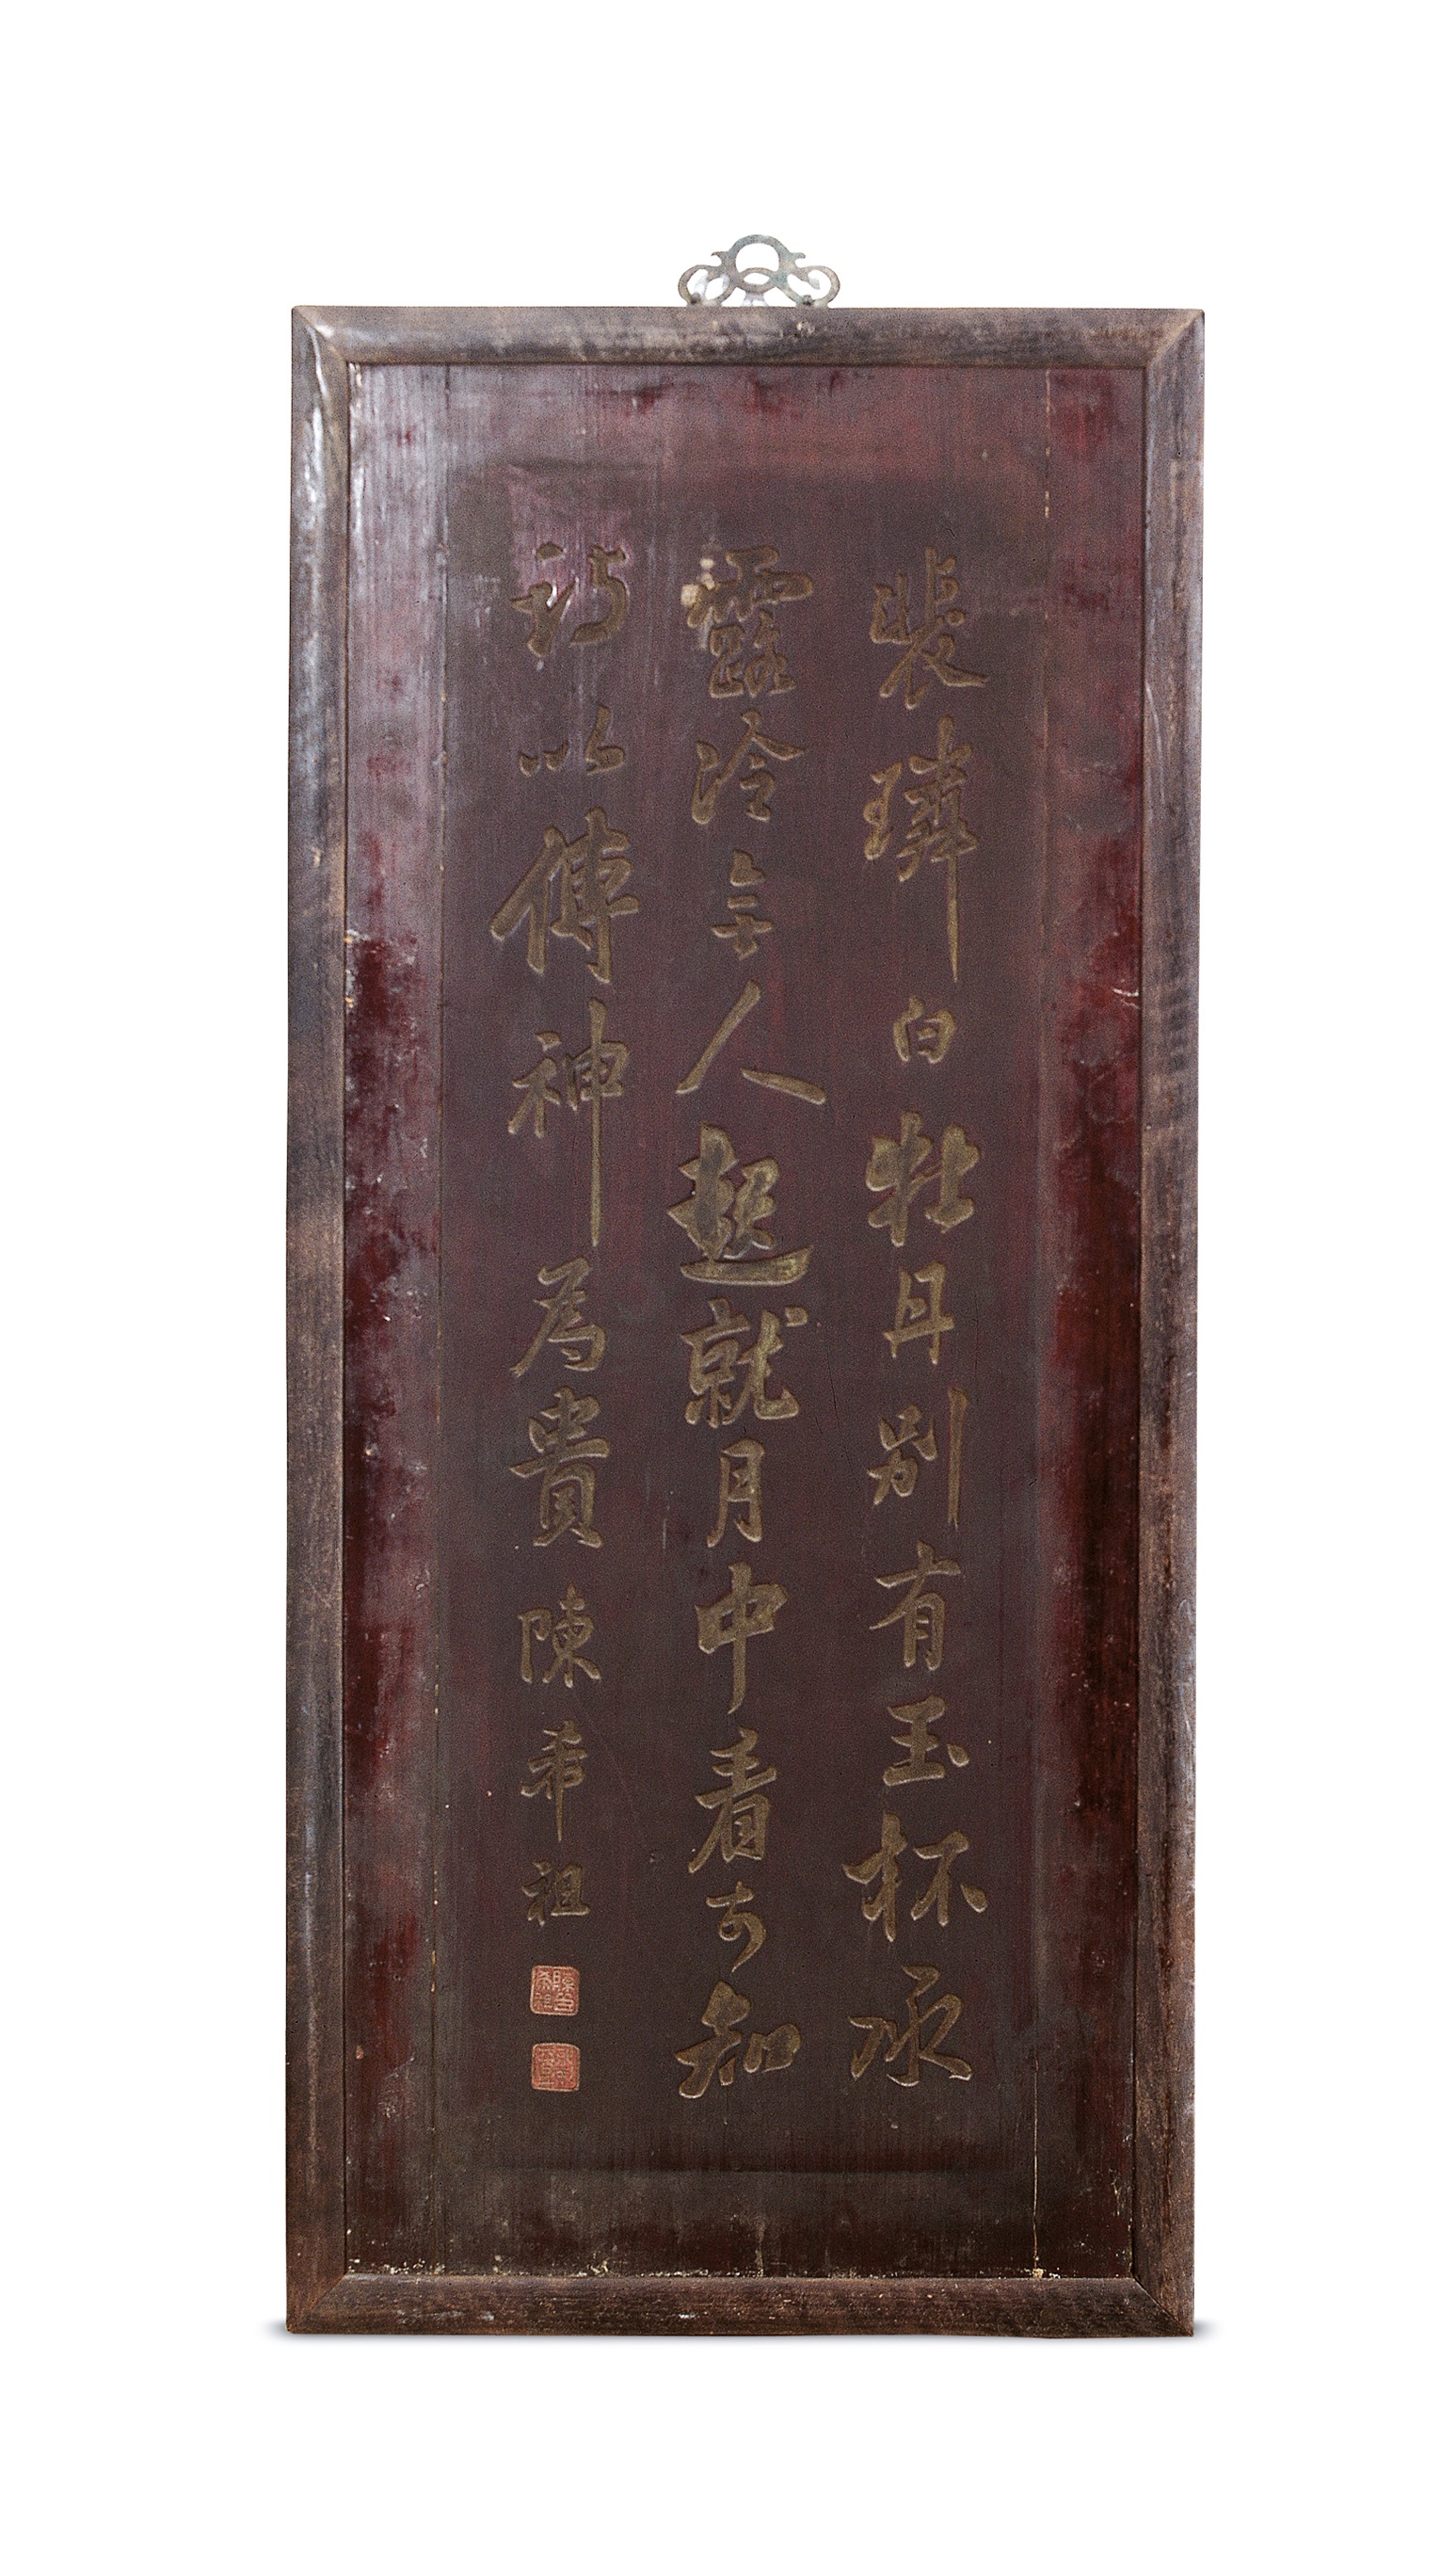 裴璘白牡丹別有玉杯承
露冷無人起就月中看可知
詩以傳神為貴 陳希祖